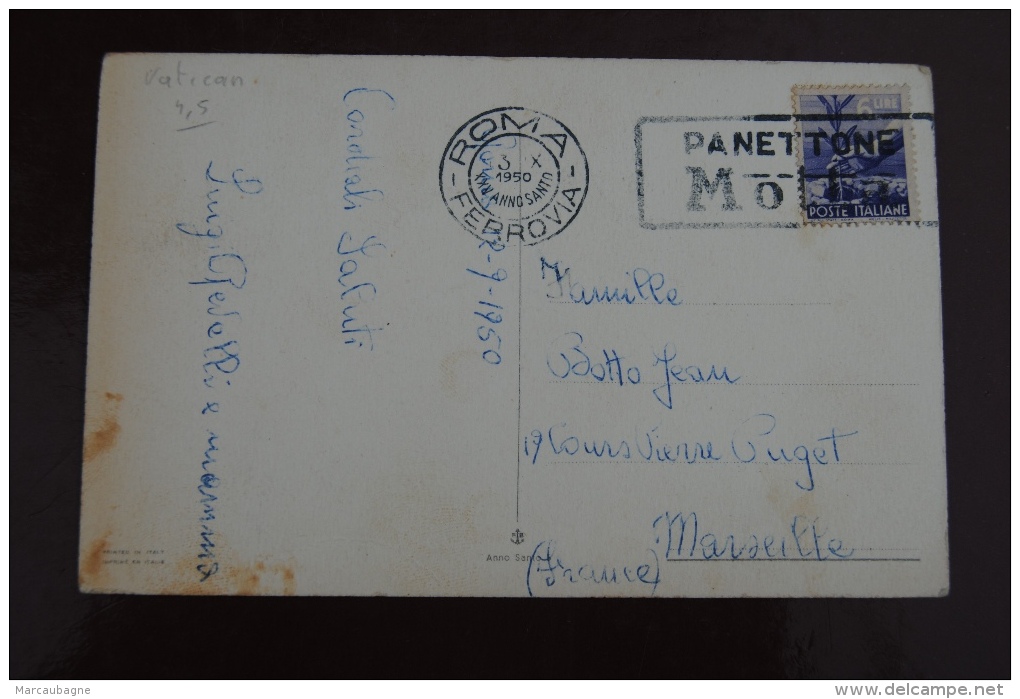 Vatican.
4,5
Cordiali Saluti
Luigi e mamma
2-9-1950
ROMA
FERROVIA
3 X
1950
ANNO SANTO
PANETTONE
Motta
6 LIRE
POSTE ITALIANE
Famille
Botto Jean
19 Cours Pierre Puget
Marseille
(France)
Anno Santo
PRINTED IN ITALY
IMPRIMÉ EN ITALIE
Marcaubagne
delcampe.net